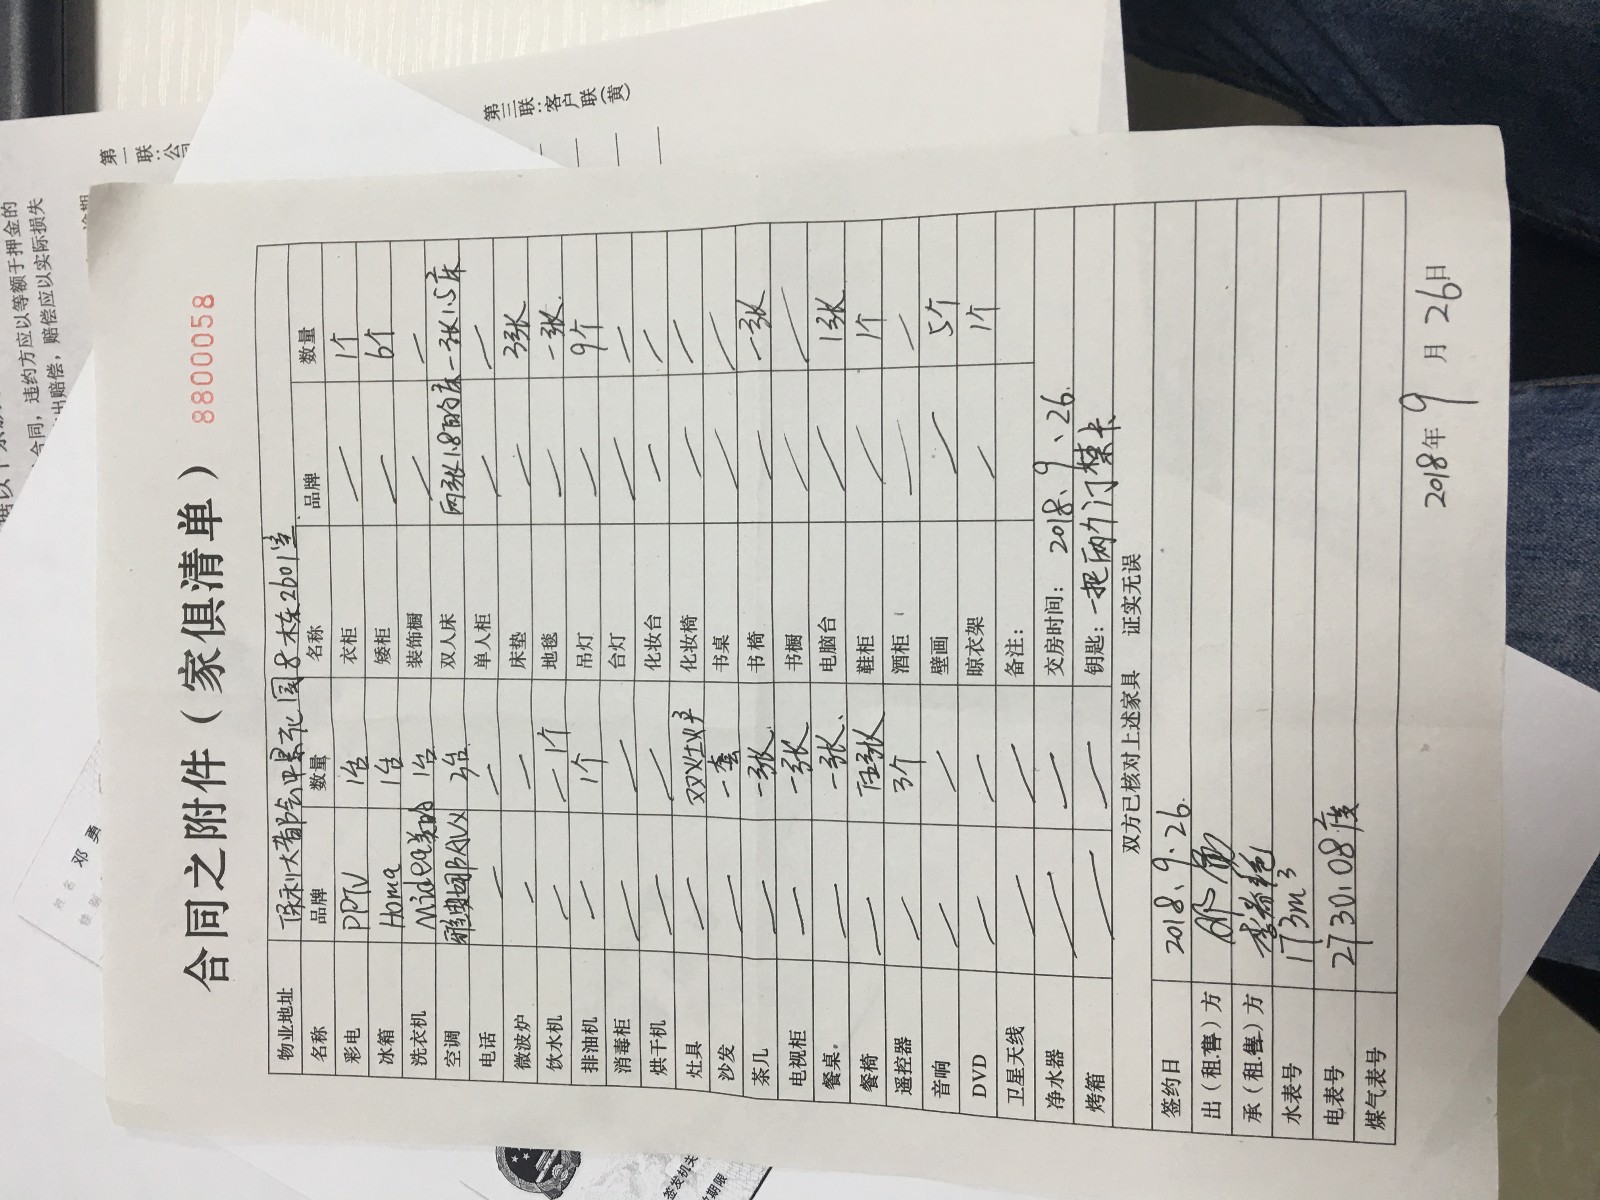 合同之附件（家俱清单）
8800058
物业地址 保利大都会中景花园8栋东2601室
名称 品牌 数量 名称 品牌 数量
彩电 PPTV 1台 衣柜 ／ 1个
冰箱 Homa 1台 矮柜 ／ 6个
洗衣机 Midea美的 1台 装饰橱 ／ ／
空调 台 双人床 两张1.8的床一张1.5床
电话 ／ ／ 单人柜 ／ ／
微波炉 ／ ／ 床垫 ／ 3张
饮水机 ／ 1个 地毯 ／ 一张
排油机 ／ 1个 吊灯 ／ 9个
消毒柜 ／ ／ 台灯 ／ ／
烘干机 ／ ／ 化妆台 ／ ／
灶具 ／ 双灶炉 化妆椅 ／ ／
沙发 ／ 一套 书桌 ／ ／
茶几 ／ 一张 书椅 ／ 一张
电视柜 ／ 一张 书橱 ／ ／
餐桌。 ／ 一张、 电脑台 ／ 1张
餐椅 ／ 伍张 鞋柜 ／ 1个
遥控器 ／ 3个 酒柜 ／ ／
音响 ／ ／ 壁画 ／ 5个
DVD ／ ／ 晾衣架 ／ 1个
卫星天线 ／ ／ 备注：
净水器 ／ ／ 交房时间： 2018、9、26.
烤箱 ／ ／ 钥匙：一把两个门禁卡
双方已核对上述家具 证实无误
签约日 2018、9、26.
出（租.售）方 邓勇
承（租.售）方
水表号 173m³
电表号 2730.08度
煤气表号
2018年 9 月 26日
第一联：公司
第三联：客户联（黄）
合同，违约方应以等额于押金的
出赔偿，赔偿应以实际损失
姓名 邓勇
签发机关
期限